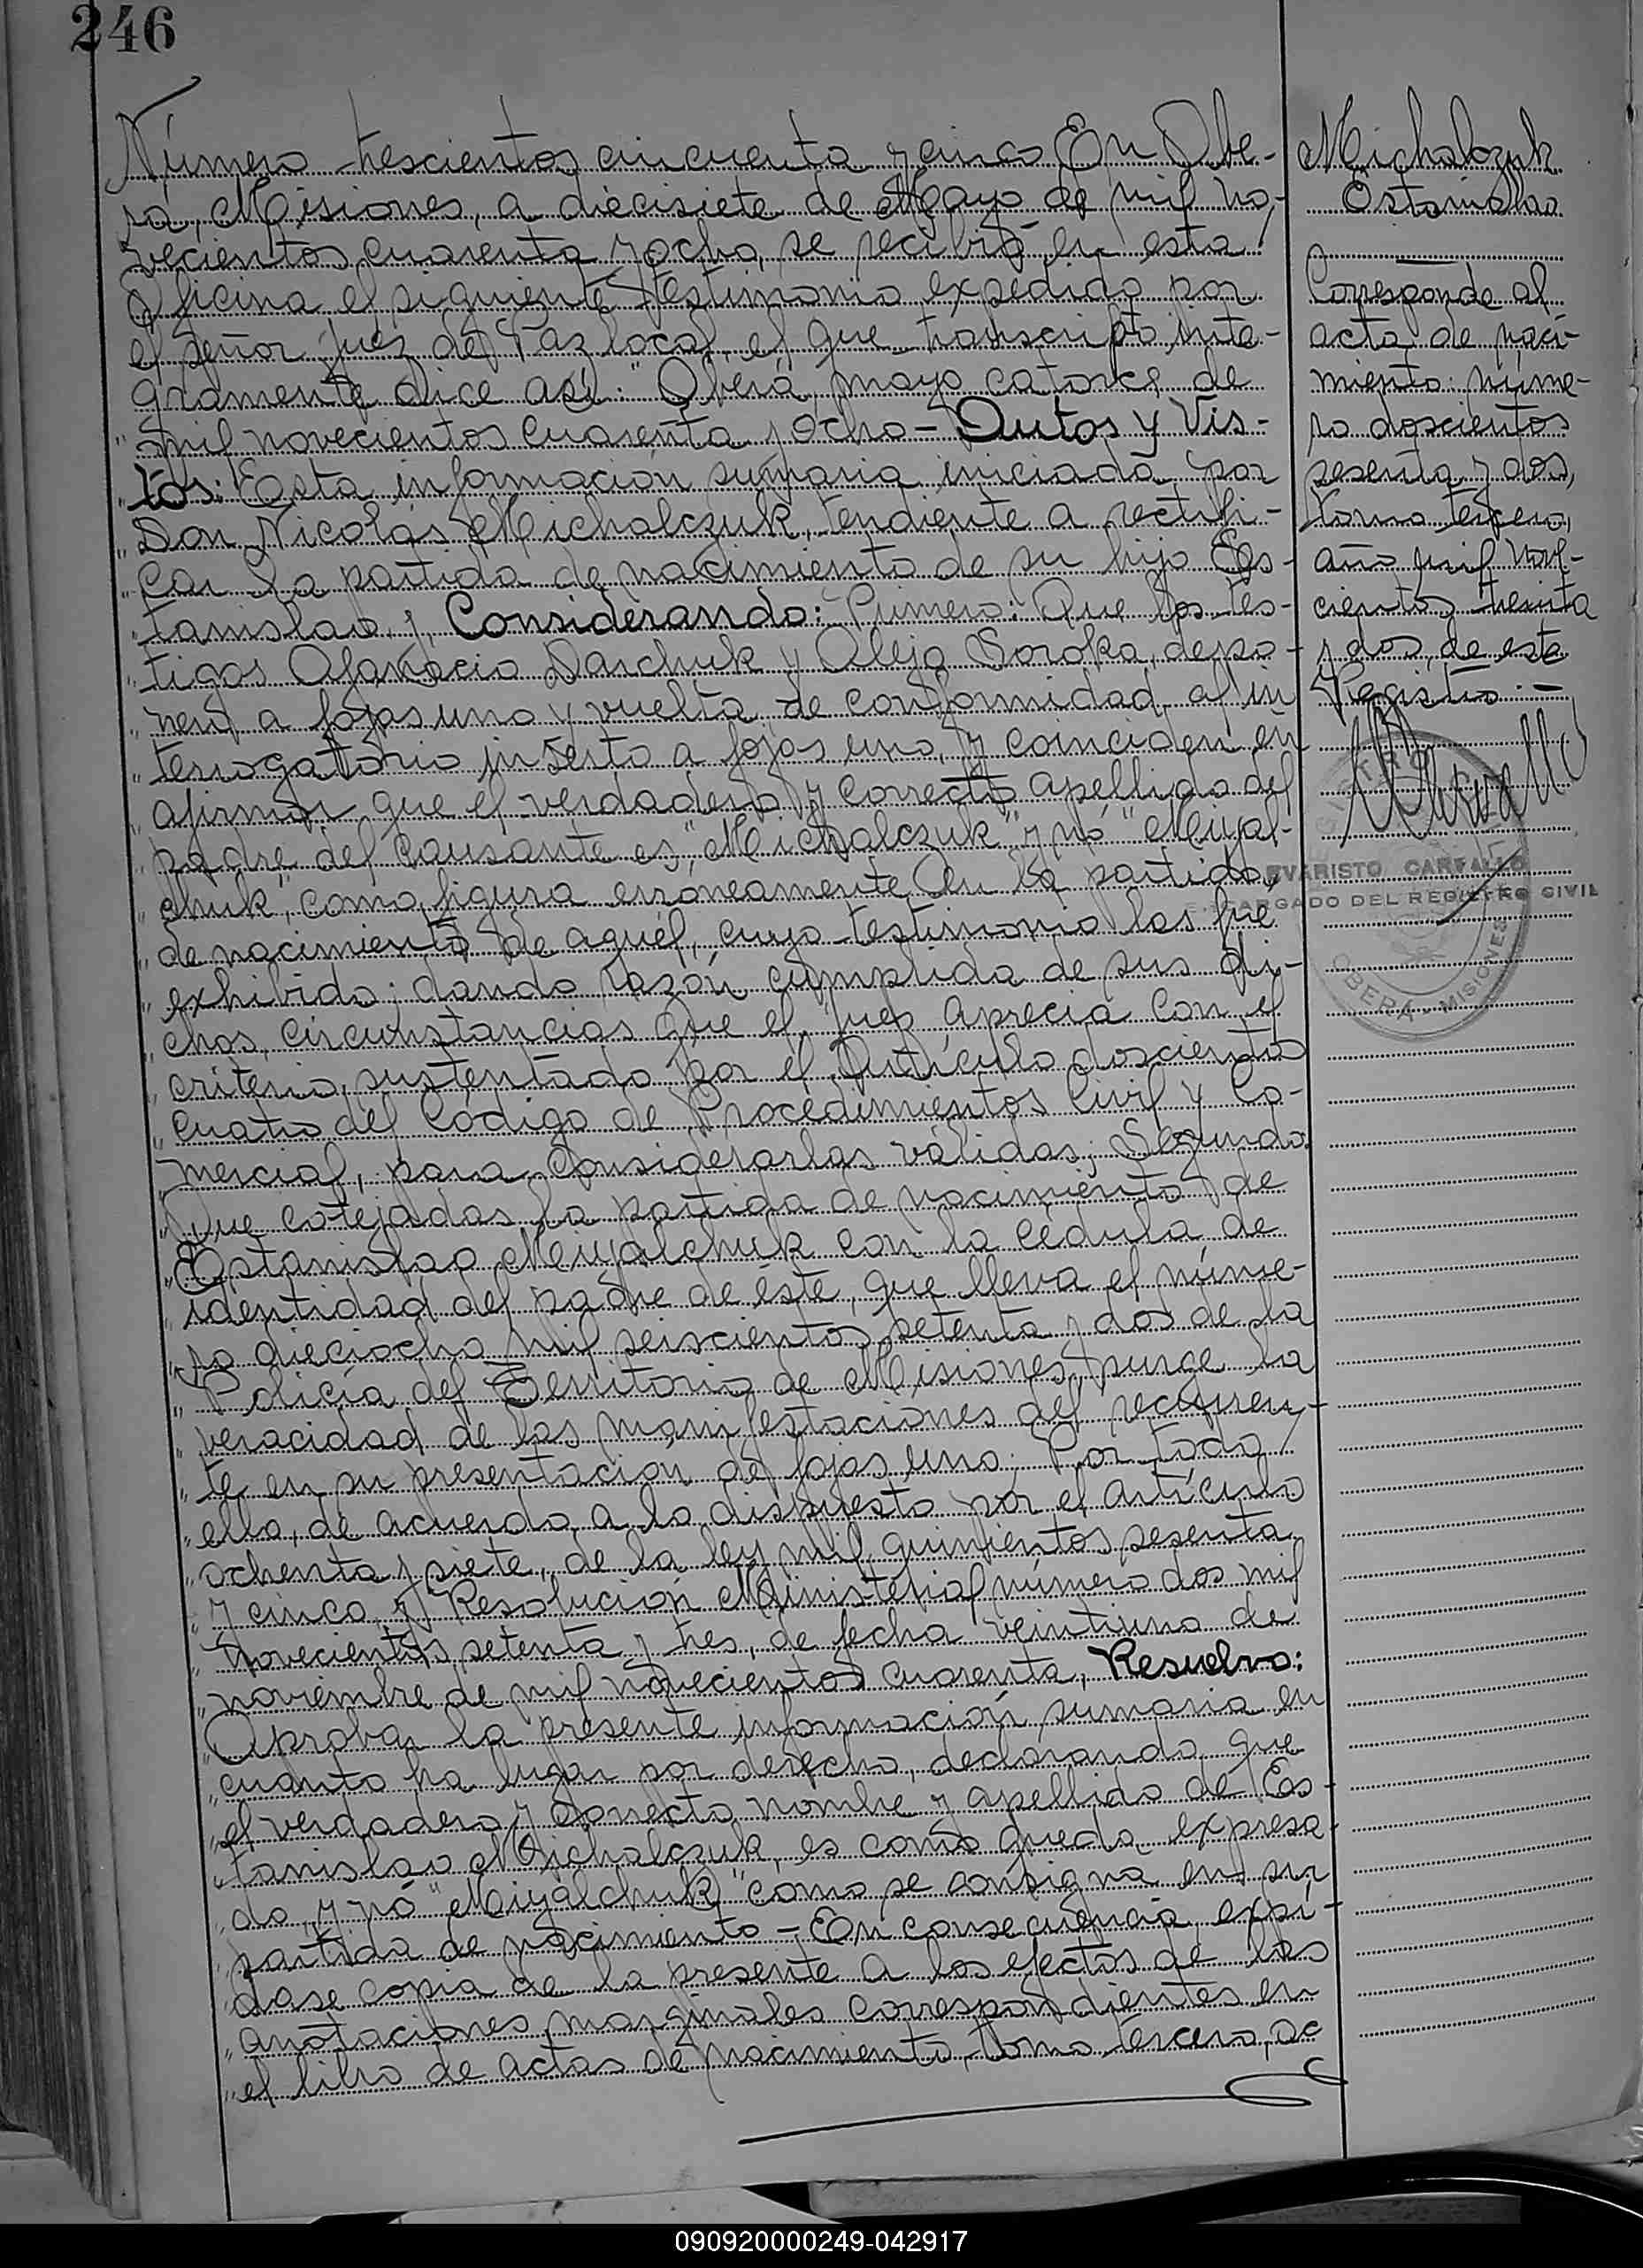 246
Número trescientos cincuenta y cinco En Obe-
rá, Misiones, a diecisiete de Mayo de mil no-
vecientos cuarenta y ocho, se recibió en esta
Oficina el siguiente testimonio expedido por
el señor Juez de Paz local, el que transcripto inte-
gramente dice así: "Oberá, mayo catorce de
" mil novecientos cuarenta y ocho - Autos y Vis-
" tos: Esta información sumaria iniciada por
" Don Nicolás Michalczuk, tendiente a rectifi-
" car la partida de nacimiento de su hijo Es-
" tanislao y, Considerando: Primero: Que los tes-
" tigos Afanacio Darchuk y Alejo Soroka, depo-
" nen a fojas uno y vuelta de conformidad al in
" terrogatorio inserto a fojas uno, y coinciden en
" afirmar que el verdadero y correcto apellido del
" padre del causante es "Michalczuk" y nó "Miyal-
" chuk", como figura erróneamente en la partida
" de nacimiento de aquél, cuyo testimonio les fue
" exhibido; dando razón cumplida de sus di-
" chos, circunstancias que el Juez aprecia con el
" criterio sustentado por el Artículo doscientos
" cuatro del Código de Procedimientos Civil y Co-
" mercial, para considerarlas válidas; Segundo
" Que cotejadas la partida de nacimiento de
" Estanislao Miyalchuk con la cédula de
" identidad del padre de éste, que lleva el núme-
" ro dieciocho mil seiscientos setenta y dos de la
" Policía del Territorio de Misiones, surge la
" veracidad de las manifestaciones del recurren-
" te en su presentación de fojas uno; Por todo
" ello, de acuerdo a lo dispuesto por el artículo
" ochenta y siete, de la ley mil quinientos sesenta
" y cinco y Resolución Ministerial número dos mil
" novecientos setenta y tres, de fecha veintiuno de
" noviembre de mil novecientos cuarenta, Resuelvo:
" Aprobar la presente información sumaria en
" cuanto ha lugar por derecho, declarando que
" el verdadero y correcto nombre y apellido de Es-
" tanislao Michalczuk, es como queda expresa-
" do, y nó "Miyalchuk" como se consigna en su
" partida de nacimiento - En consecuencia, expí-
" dase copia de la presente a los efectos de las
" anotaciones marginales correspondientes en
" el libro de actas de nacimiento, tomo tercero, ac
Michalczuk
Estanislao
Corresponde al
acta de naci-
miento núme-
ro doscientos
sesenta y dos,
tomo tercero,
año mil nove-
cientos treinta
y dos, de este
Registro.-
EVARISTO CARVALLO
ENCARGADO DEL REGISTRO CIVIL
OBERÁ - MISIONES
090920000249-042917